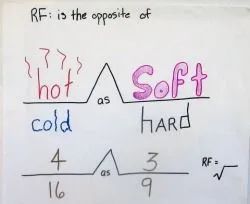 RF: is the opposite of
hot as soft
cold HARD
4 as 3
16 9
RF = √